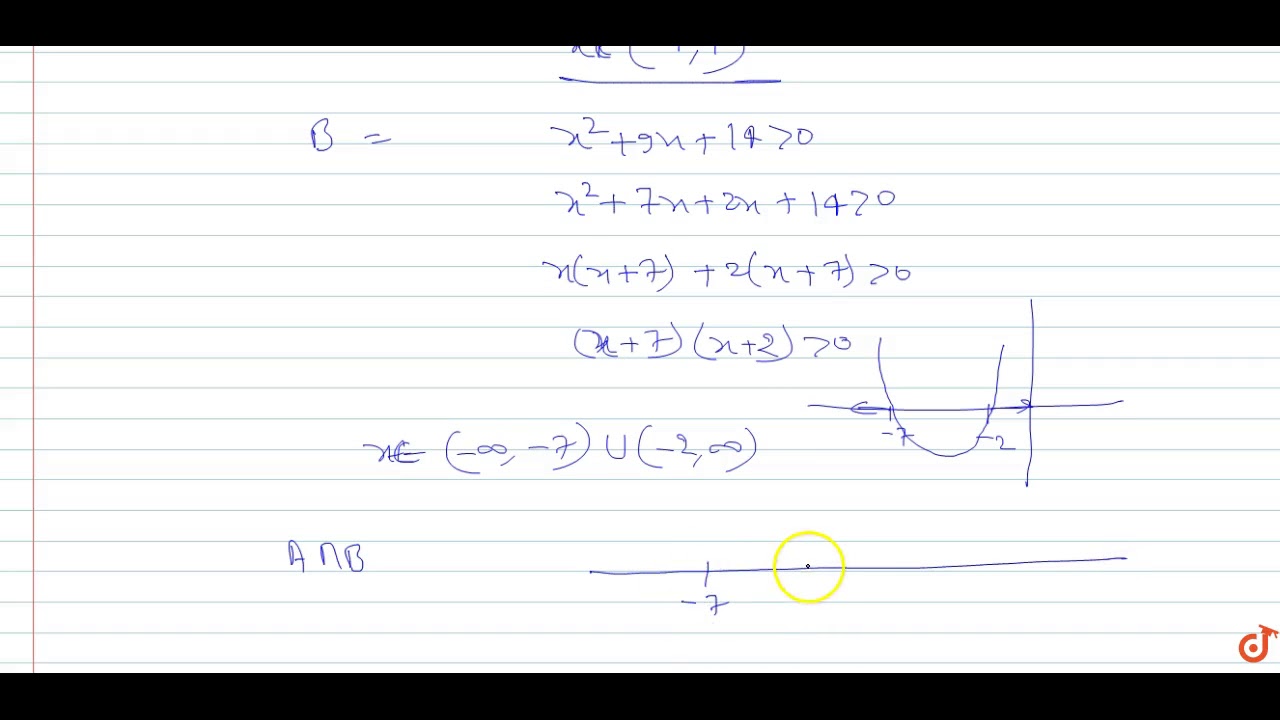 B = x² + 9x + 14 > 0
x² + 7x + 2x + 14 > 0
x(x + 7) + 2(x + 7) > 0
(x + 7) (x + 2) > 0
-7 -2
x ∈ (-∞, -7) ∪ (-2, ∞)
A ∩ B
-7